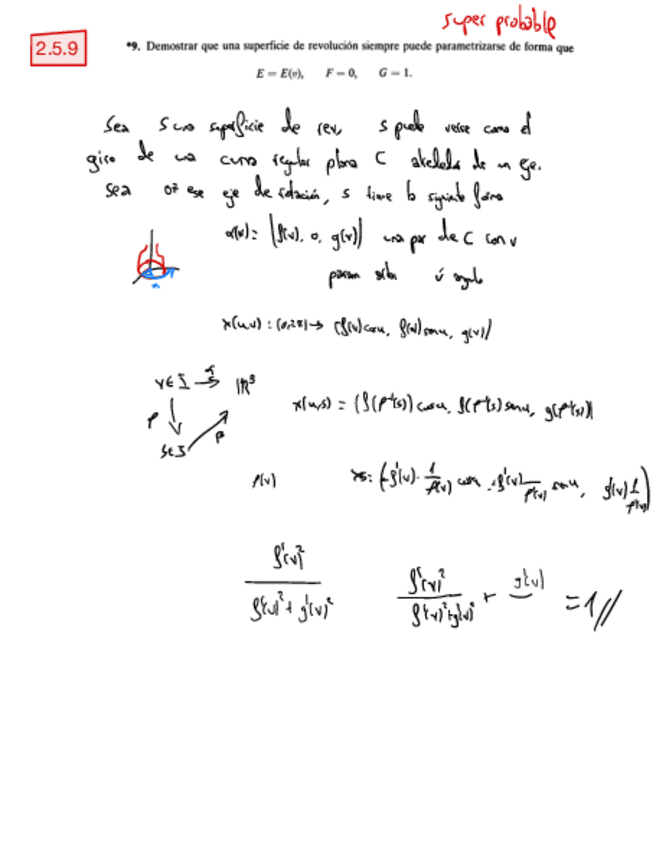 super probable
2.5.9
*9. Demostrar que una superficie de revolución siempre puede parametrizarse de forma que
E = E(v), F = 0, G = 1.
Sea S una superficie de rev, S puede verse como el
giro de una curva regular plana C alrededor de un eje.
Sea oz ese eje de rotación, S tiene la siguiente forma
α(v) = (f(v), 0, g(v)) una par de C con v
param u angulo
x(u,v) : (0,2π) → (f(v)cosu, f(v)senu, g(v))
v ∈ I → ℝ³
x(u,s) = (f(ρ⁻¹(s)) cosu, f(ρ⁻¹(s)) senu, g(ρ⁻¹(s)))
ρ
β
s ∈ J
ρ(v)
xs: (f'(v) · 1/ρ'(v) cosu, f'(v) 1/ρ'(v) senu, g'(v) 1/ρ'(v))
f'(v)² / f'(v)² + g'(v)²
f'(v)² / f'(v)² + g'(v)² + g'(v) = 1 //